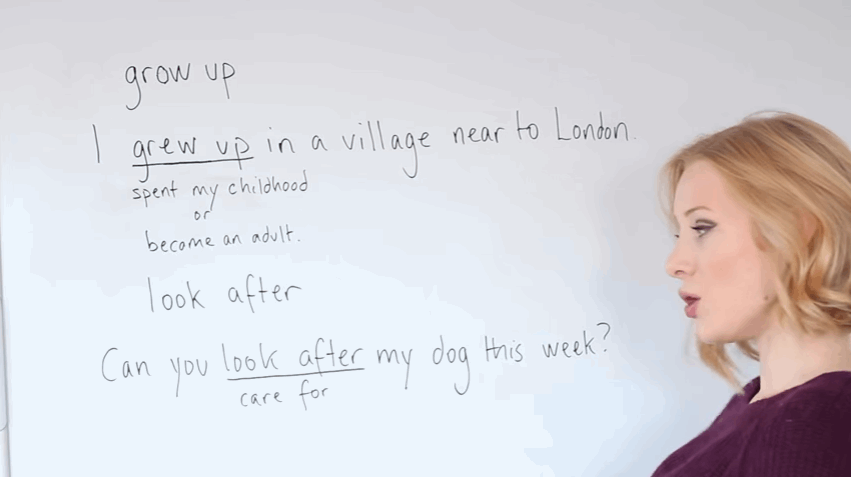 grow up
I grew up in a village near to London.
spent my childhood
or
become an adult.
look after
Can you look after my dog this week?
care for